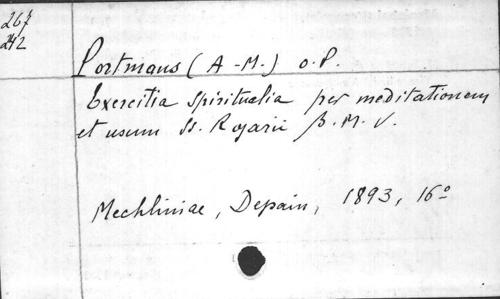 267
242
Portmans (A-M.) O.P.
Exercitia Spiritualia per meditationem
et usum SS. Rosarii B. M. V.
Mechliniae, Depain, 1893, 16°